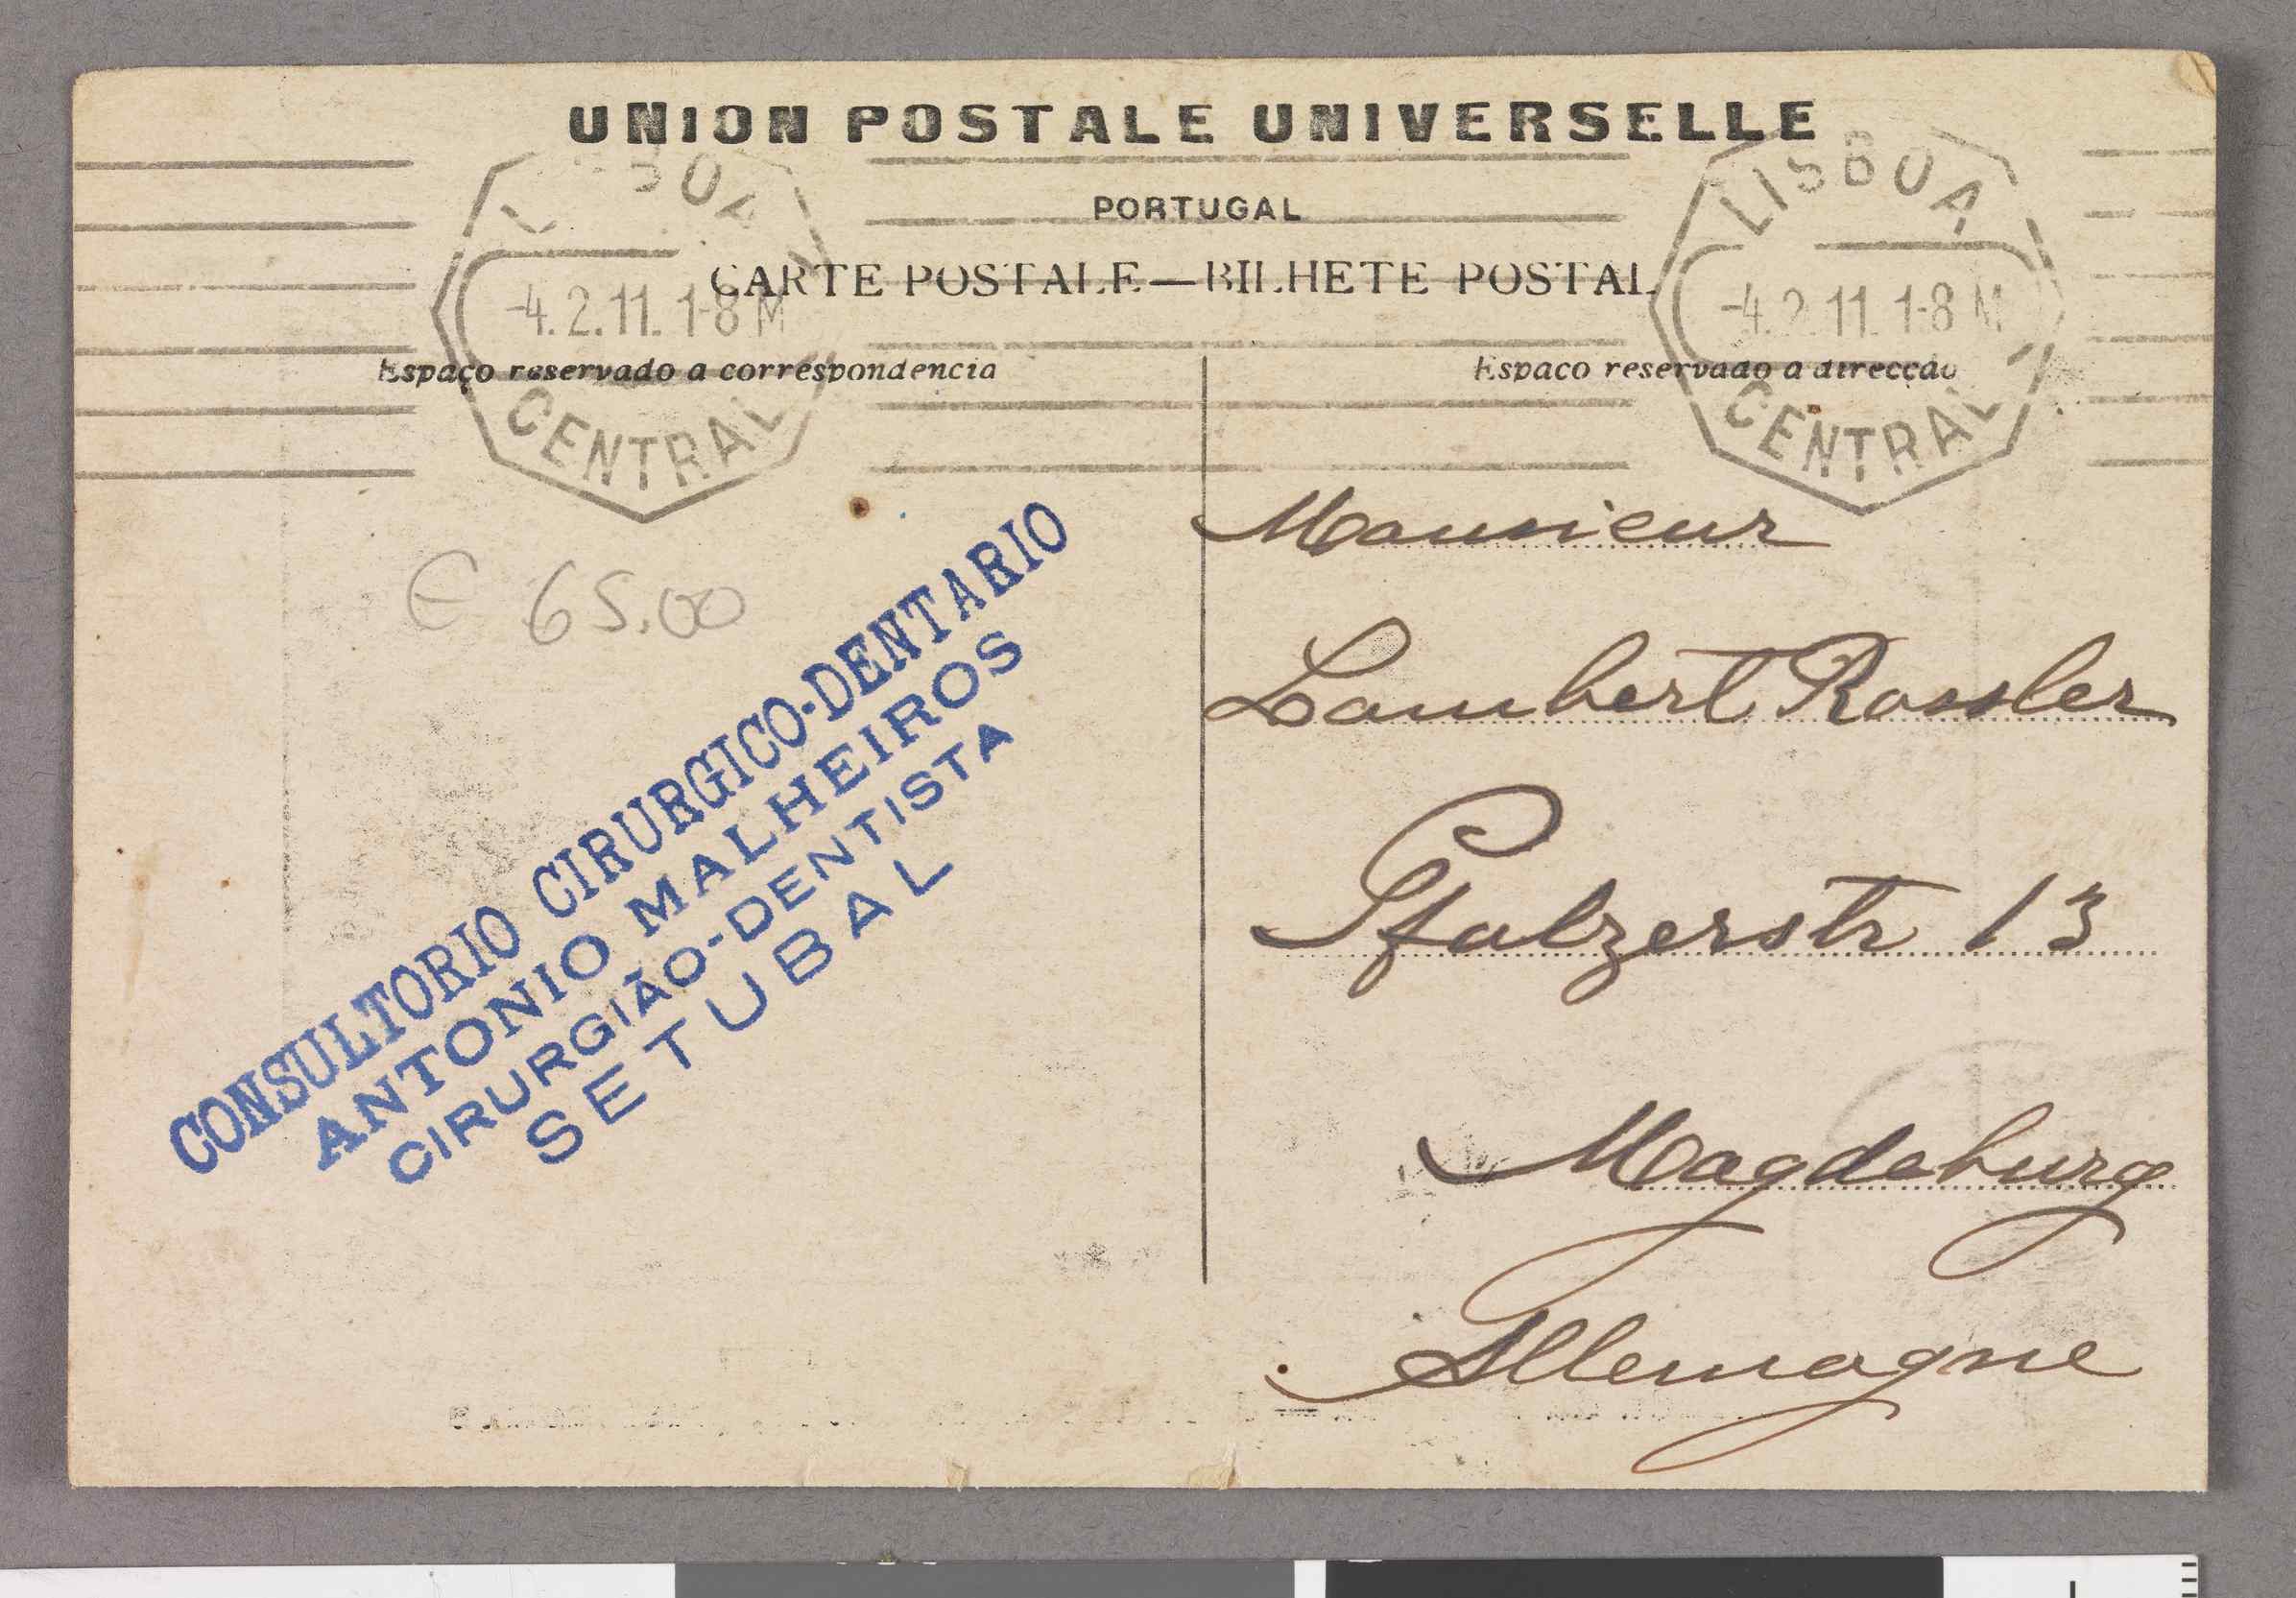 UNION POSTALE UNIVERSELLE
PORTUGAL
CARTE POSTALE—BILHETE POSTAL
LISBOA
-4.2.11. 1-8 M
CENTRAL
LISBOA
-4.2.11. 1-8 M
CENTRAL
Espaço reservado a correspondencia
Espaço reservado a direcção
€ 65.00
CONSULTORIO CIRURGICO-DENTARIO
ANTONIO MALHEIROS
CIRURGIÃO-DENTISTA
SETUBAL
Monsieur
Lambert Rossler
Pfalzerstr 13
Magdeburg
Allemagne